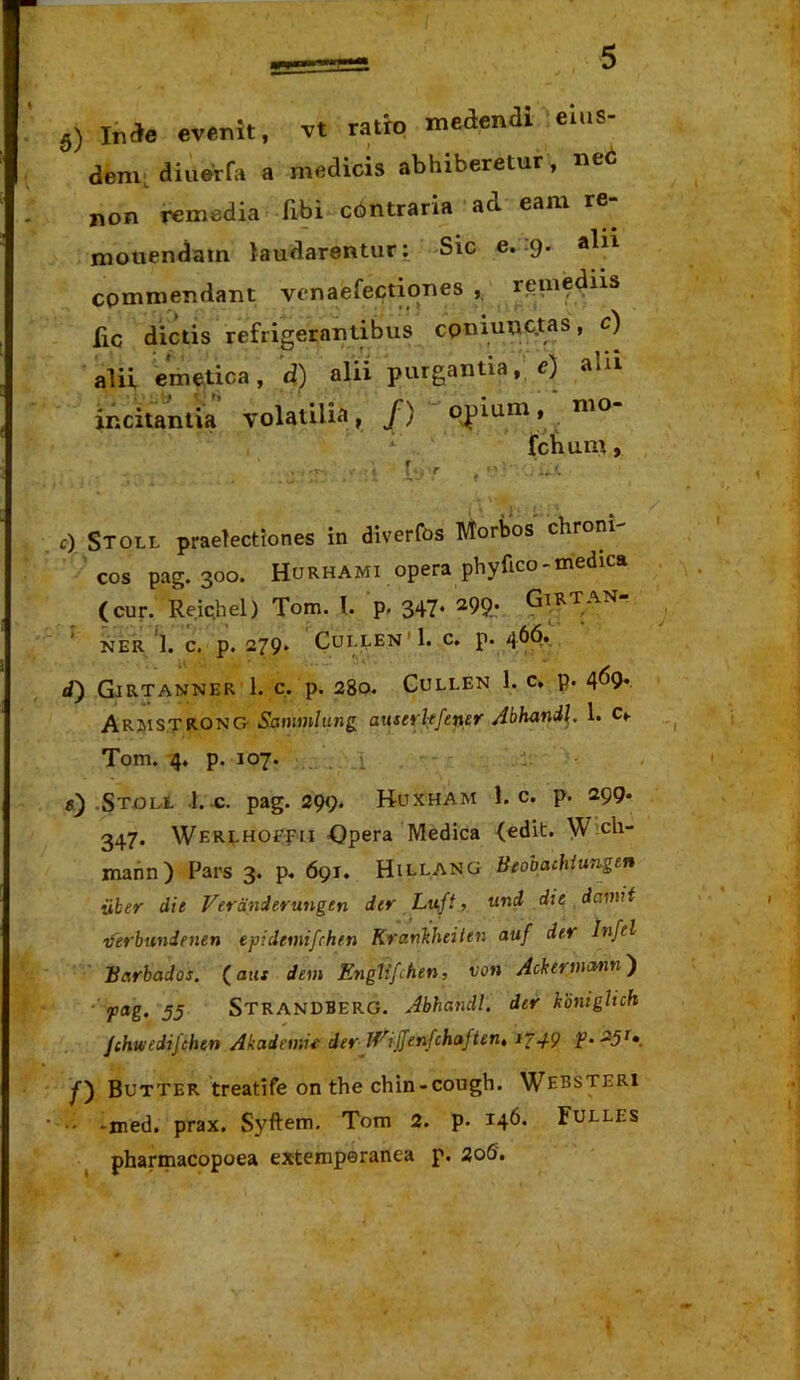 5
5) Inde evenit, vt ratio medendi eius-
dem diuerſa a medicis abhiberetur, nec
non remedia ſibi contraria ad eam re-
mouendam laudarentur: Sic e. g. alii
commendant venaeſectiones, remediis
ſic dictis refrigerantibus coniunctas, c)
alii emetica, d) alii purgantia, e) alii
incitantia volatilia, f) opium, mo-
ſchum,
c) STOLL praelectiones in diverſos Morbos chroni-
cos pag. 300. HURHAMI opera phyſico-medica
(cur. Reichel) Tom. I. p. 347. 299. GIRTAN-
NER l. c. p. 279. CULLEN l. c. p. 466.
d) GIRTANNER l. c. p. 280. CULLEN l. c. p. 469.
ARMSTRONG Sammlung auserleſener Abhandl. l. c.
Tom. 4. p. 107.
e) STOLL l. c. pag. 299. HUXHAM l. c. p. 299.
347. WERLHOFFII Opera Medica (edit. Wich-
mann) Pars 3. p. 691. HILLANG Beobachtungen
über die Veränderungen der Luft, und die damit
verbundenen epidemiſchen Krankheiten auf der Inſel
Barbados. (aus dem Engliſchen, von Ackermann)
pag. 55 STRANDBERG. Abhandl. der königlich
ſchwediſchen Akademie der Wiſſenſchaften. 1749 p. 251.
f) BUTTER treatiſe on the chin-cough. WEBSTERI
med. prax. Syſtem. Tom 2. p. 146. FULLES
pharmacopoea extemporanea p. 206.